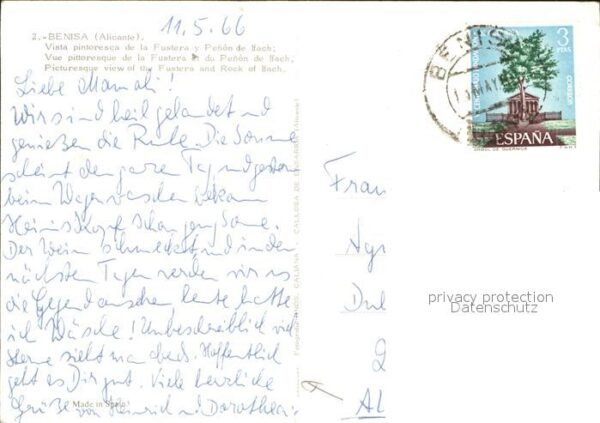 11.5.66
2.-BENISA (Alicante).
Vista pintoresca de la Fustera y Peñón de Ifach;
Vue pittoresque de la Fustera et du Peñón de Ifach;
Picturesque view of the Fustera and Rock of Ifach.
Liebe Mamali!
Wir sind heil gelandet und
genießen die Ruhe. Die Sonne
scheint den ganzen Tag und gestern
beim Wagenwaschen bekam
Heinis Kopf schon genug Sonne.
Der Wein schmeckt und in den
nächsten Tagen werden wir uns
die Gegend ansehen heute hatte
ich Wäsche! Unbeschreiblich viel
Sterne sieht man abends. Hoffentlich
geht es Dir gut. Viele herzliche
Grüße von Heinrich und Dorothea
Made in Spain
CALLOSA DE ENSARRIÁ (Alicante)
BENIS
3
PTAS
CORREOS
ESPAÑA
ARBOL DE GUERNICA
F.N.M.T.
Frau
Nym
Dul
2
AL
privacy protection
Datenschutz